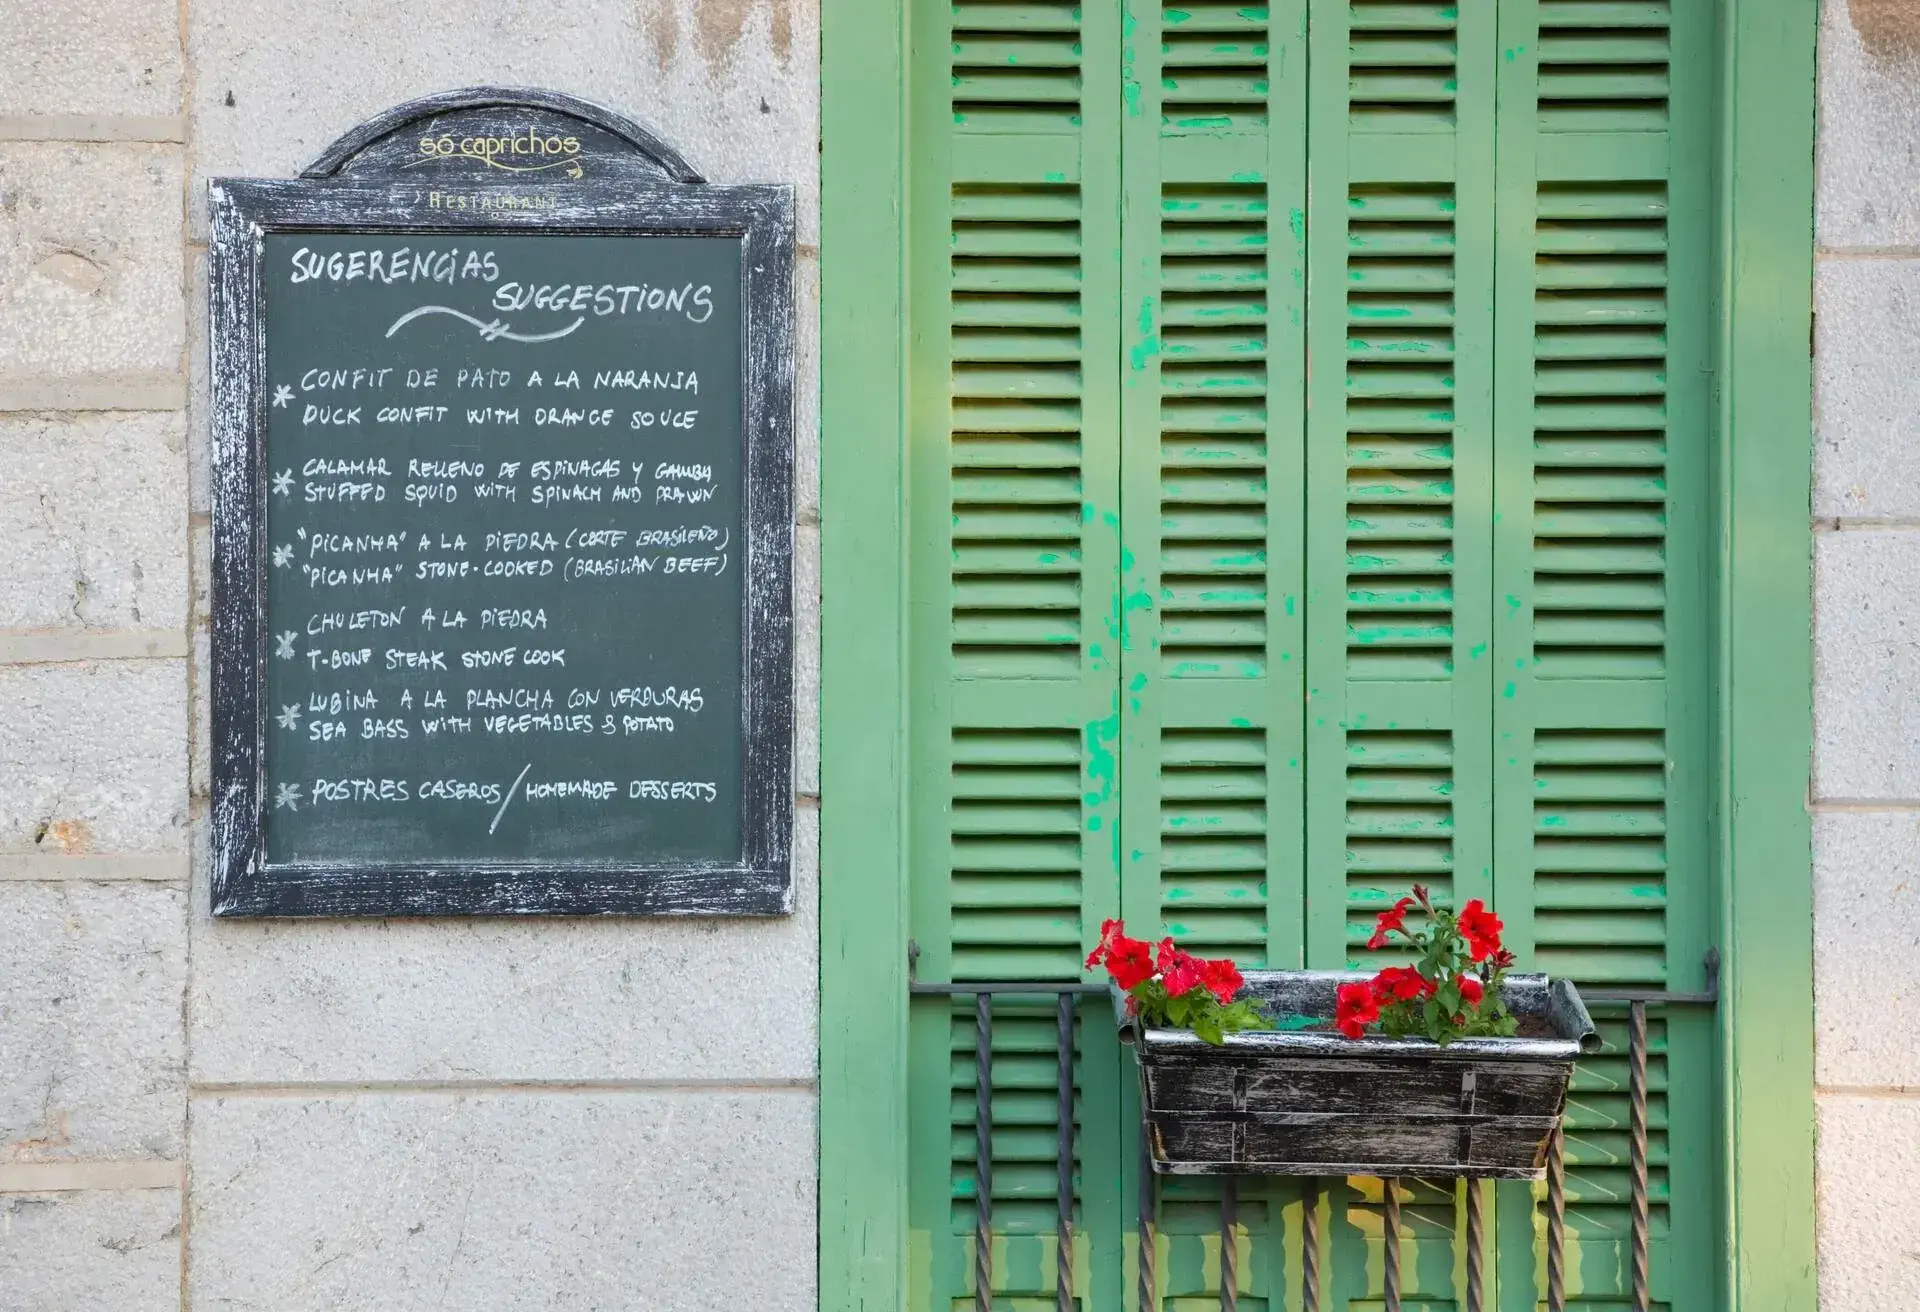 só caprichos
RESTAURANT
SUGERENCiAS
SUGGESTIONS
* CONFIT DE PATO A LA NARANJA
DUCK CONFIT WITH ORANGE SOUCE
* CALAMAR RELLENO DE ESPINAGAS Y GAMBA
STUFFED SQUID WITH SPINACH AND PRAWN
* "PICANHA" A LA PIEDRA (CORTE BRASILEÑO)
"PICANHA" STONE-COOKED (BRASILIAN BEEF)
* CHULETON A LA PIEDRA
T-BONE STEAK STONE COOK
* LUBINA A LA PLANCHA CON VERDURAS
SEA BASS WITH VEGETABLES & POTATO
* POSTRES CASEROS / HOMEMADE DESSERTS